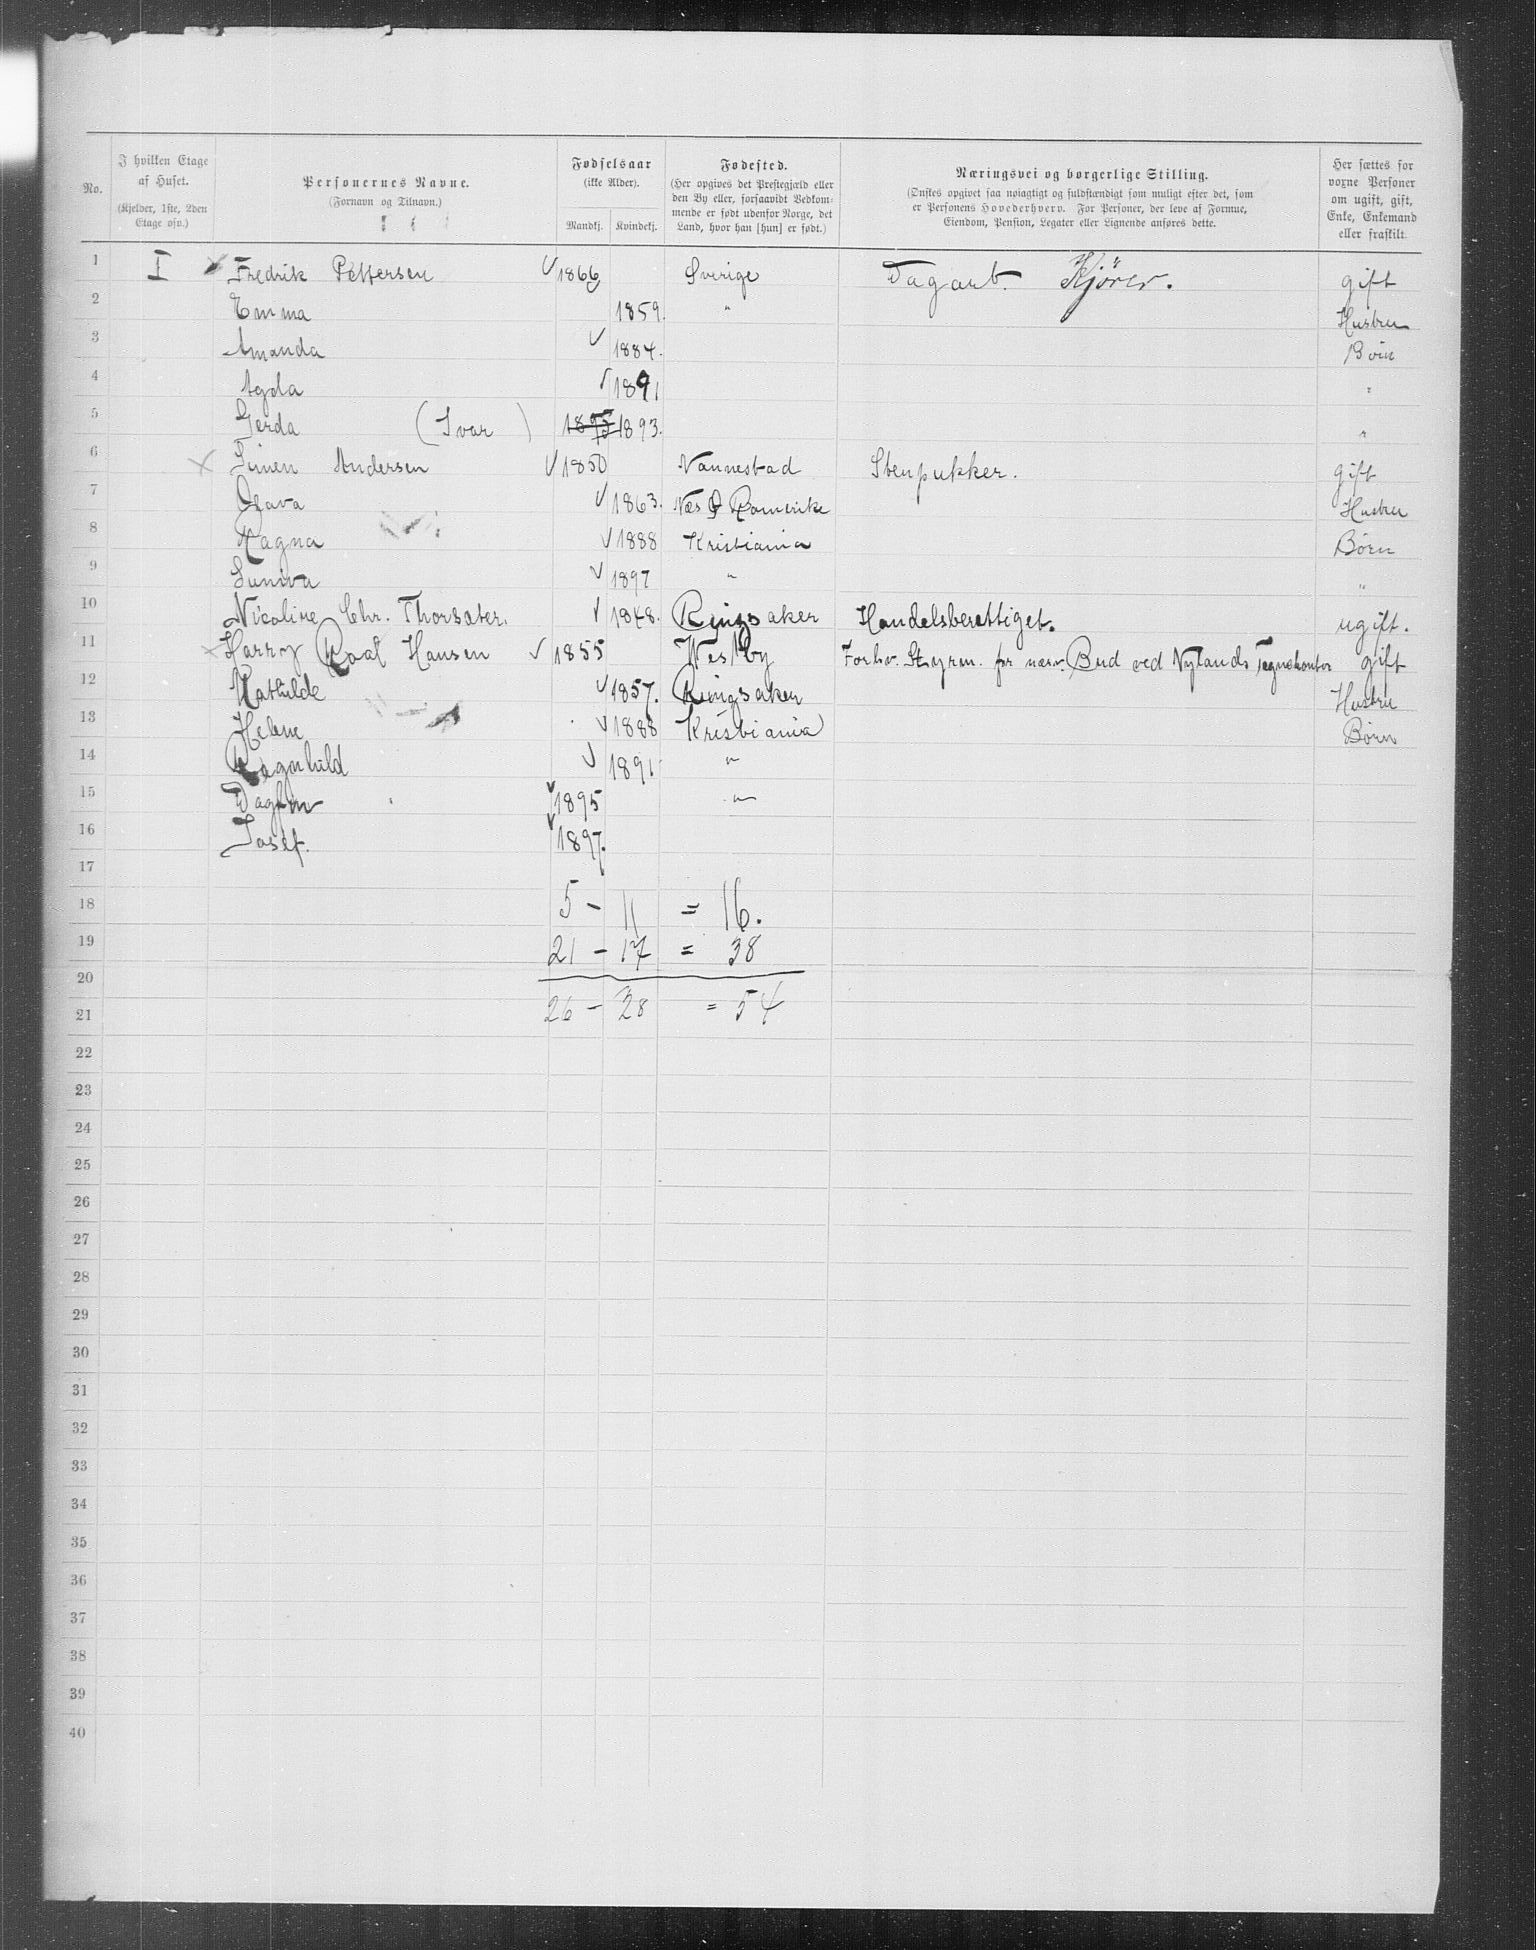 No.
I hvilken Etage af Huset.
(Kjelder, 1ste, 2den Etage osv.)
Personernes Navne.
(Fornavn og Tilnavn.)
Fødselsaar
(ikke Alder).
Mandkj. Kvindekj.
Fødested.
(Her opgives det Prestegjæld eller den By eller, forsaavidt Vedkommende er født udenfor Norge, det Land, hvor han [hun] er født.)
Næringsvei og borgerlige Stilling.
(Ønskes opgivet saa nøiagtigt og fuldstændigt som muligt efter det, som er Personens Hovederhverv. For Personer, der leve af Formue, Eiendom, Pension, Legater eller Lignende anføres dette.
Her sættes for voxne Personer om ugift, gift, Enke, Enkemand eller fraskilt.
1 I Fredrik Pettersen 1866 Sverige Dagarb. Kjörer. gift
2 Emma 1859. " Hustru
3 Amanda 1884. Börn
4 Agda 1891 "
5 Gerda (Ivar) 1893. "
6 Simen Andersen 1850 Nannestad Stenpukker. gift
7 Olava 1863. Næs Romerike Hustru
8 Ragna 1888 Kristiania Børn
9 Suniva 1897 " "
10 Nicoline Chr. Thorsæter. 1848. Ringsaker Handelsberettiget. ugift.
11 Harry Roal Hansen 1855 Westby Forhv. Styrm. for nærv. Bud ved Nylands Tegnekontor gift
12 Mathilde 1857. Ringsaker Hustru
13 Helene 1888 Kristiania Børn
14 Ragnhild 1891 "
15 Dagfin 1895 "
16 Josef. 1897.
17
18 5 - 11 = 16.
19 21 - 17 = 38
20
21 26 - 28 = 54
22
23
24
25
26
27
28
29
30
31
32
33
34
35
36
37
38
39
40